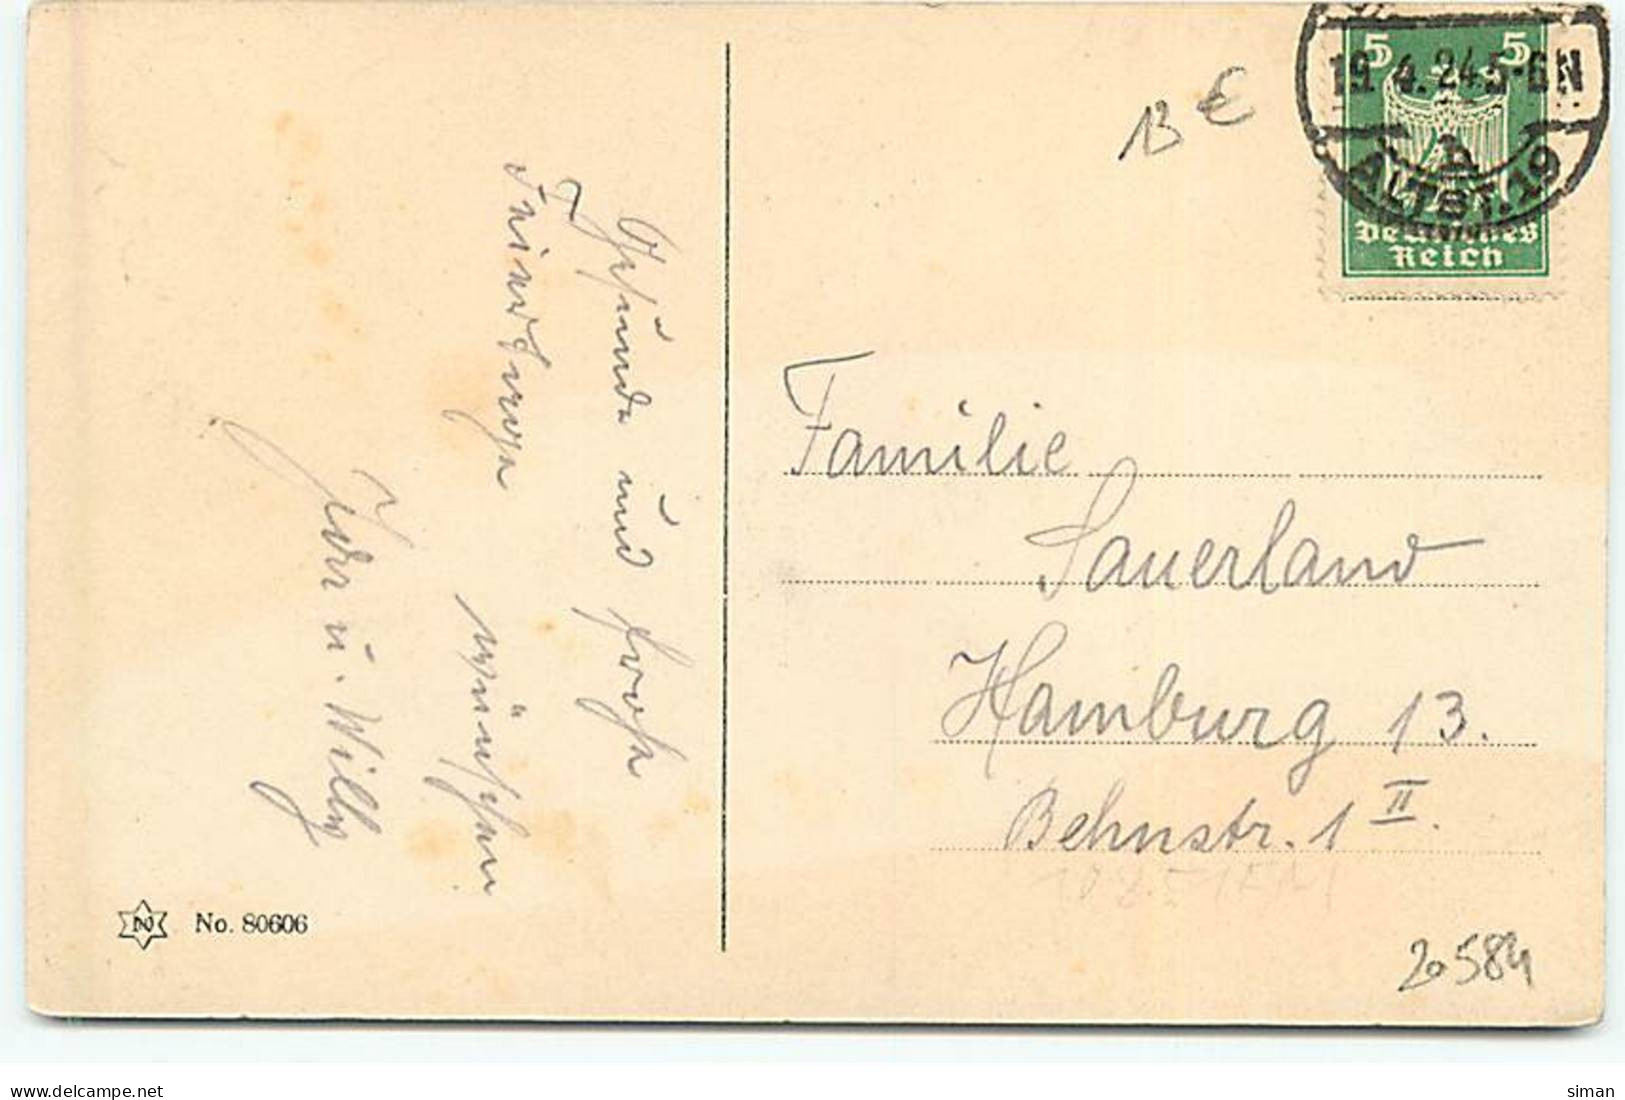 Gesunde und frohe
Feiertage
wünschen
Ida u. Willy
No. 80606
13 €
5 5
19.4.24.5-6N
ALTST. 19
Deutsches
Reich
Familie
Sauerland
Hamburg 13.
Behnstr. 1 II.
20584
www.delcampe.net
siman